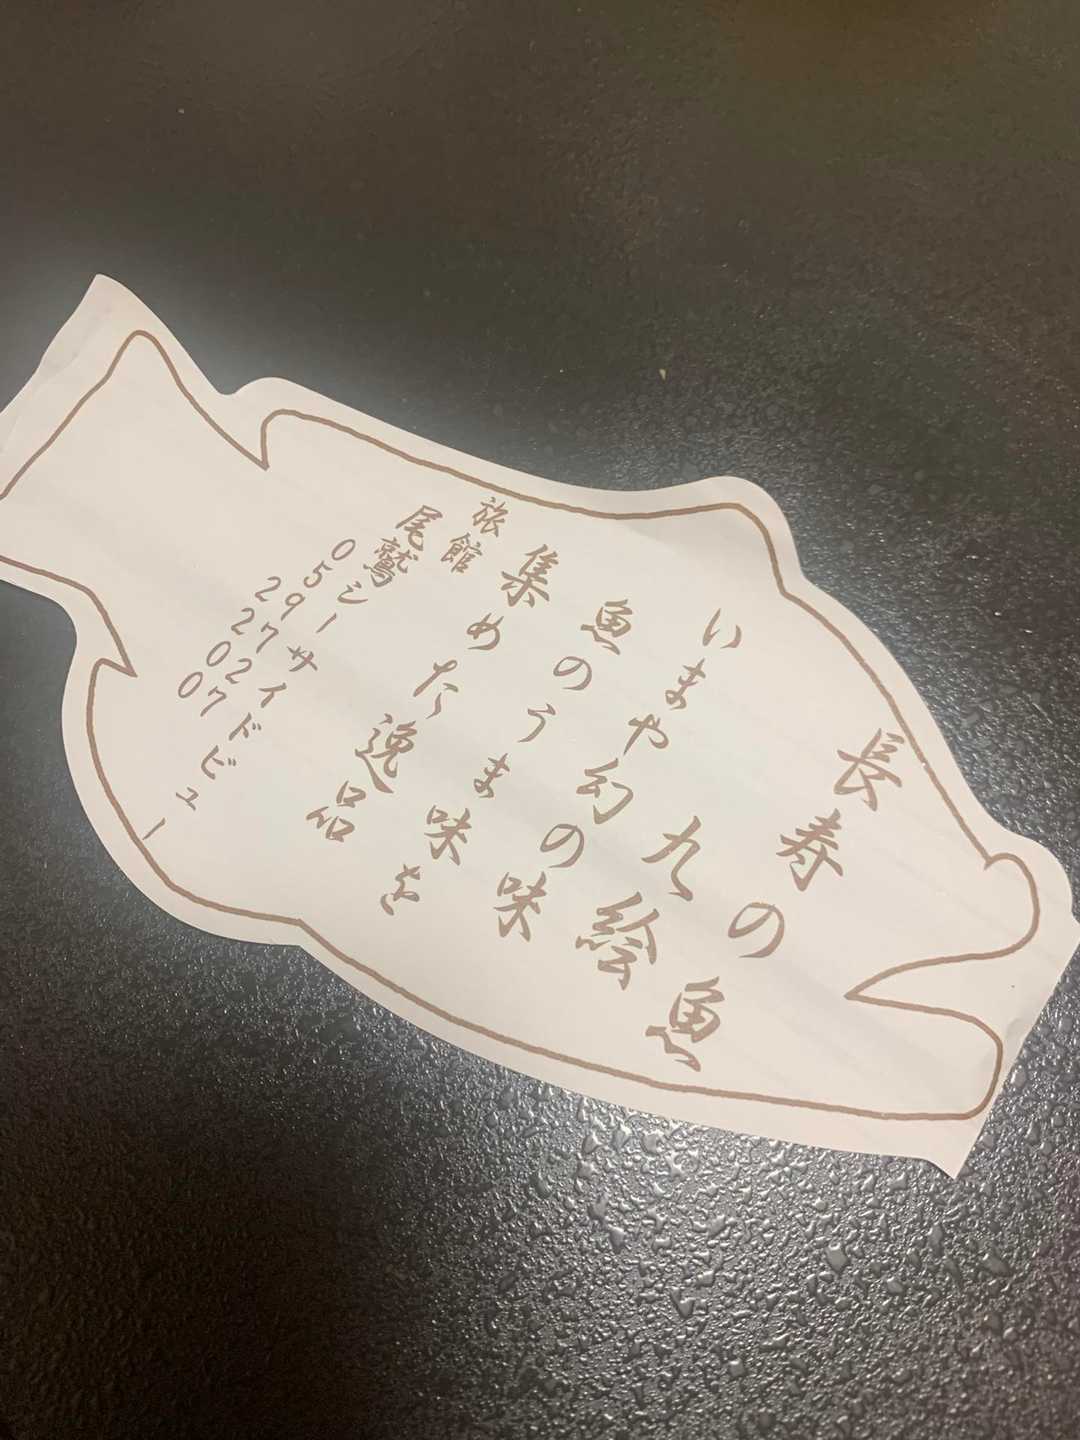 長寿の魚
九絵
いまや幻の味
魚のうま味を
集めた逸品
旅館
尾鷲シーサイドビュー
059727
2200